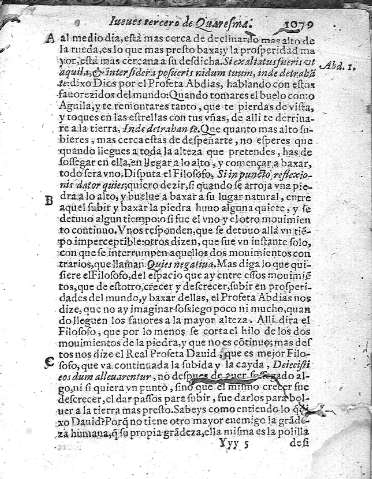 Iueues tercero de Quaresma. 1079
A al medio dia, està mas cerca de declinar lo mas alto de
la rueda, es lo que mas presto baxa; y la prosperidad ma
yor, està mas cercana a su desdicha. Si exaltatus fueris vt
aquila, & inter sidera posueris nidum tuum, inde detrahã
te: dixo Dios por el Profeta Abdias, hablando con estas
Abd. 1.
fauorezidos del mundo. Quando tomares el buelo como
Aguila, y te remontares tanto, que te pierdas de vista,
y toques en las estrellas con tus vñas, de alli te derriua-
re a la tierra, Inde detrahan te. Que quanto mas alto su-
bieres, mas cerca estàs de despeñarte, no esperes que
quando llegues a toda la alteza que pretendes, has de
sossegar en ella, en llegar a lo alto, y començar a baxar,
todo serà vno. Disputa el Filosofo, Si in puncto reflexio-
nis dator quies; quiero dezir, si quando se arroja vna pie
B dra a lo alto, y buelue a baxar a su lugar natural, entre
aquel subir y baxar la piedra huuo alguna quiete, y se
detuuo algun tiempo o si fue el vno y el otro mouimien
to continuo. Vnos responden, que se detuuo allà vn tiẽ-
po imperceptible: otros dizen, que fue vn instante solo,
con que se interrumpen aquellos dos mouimientos con
trarios, que llaman Quies negatiua. Mas diga lo que qui-
siere el Filosofo, del espacio que ay entre essos mouimiẽ
tos, que de estotro, crecer y descrecer, subir en prosperi-
dades del mundo, y baxar dellas, el Profeta Abdias nos
dize, que no ay imaginar sossiego poco ni mucho, quan
do lleguen los fauores a la mayor alteza. Alli dirà el
Filosofo, que por lo menos se corta el hilo de los dos
mouimientos de la piedra, y que no es cõtinuo; mas des
tos nos dize el Real Profeta Dauid, que es mejor Filo-
C sofo, que và continuada la subida y la cayda, Deiecisti
eos dum alleuarentur, no despues de auer sossegado al-
go, ni si quiera vn punto, sino que el mismo crecer fue
descrecer, el dar passos para subir, fue darlos para bol-
uer a la tierra mas presto. Sabeys como entiendo lo q̃ di
xo Dauid? Porq̃ no tiene otro mayor enemigo la grãde-
za humana, q̃ su propia grãdeza, ella misma es la polilla
Yyy 5 desi